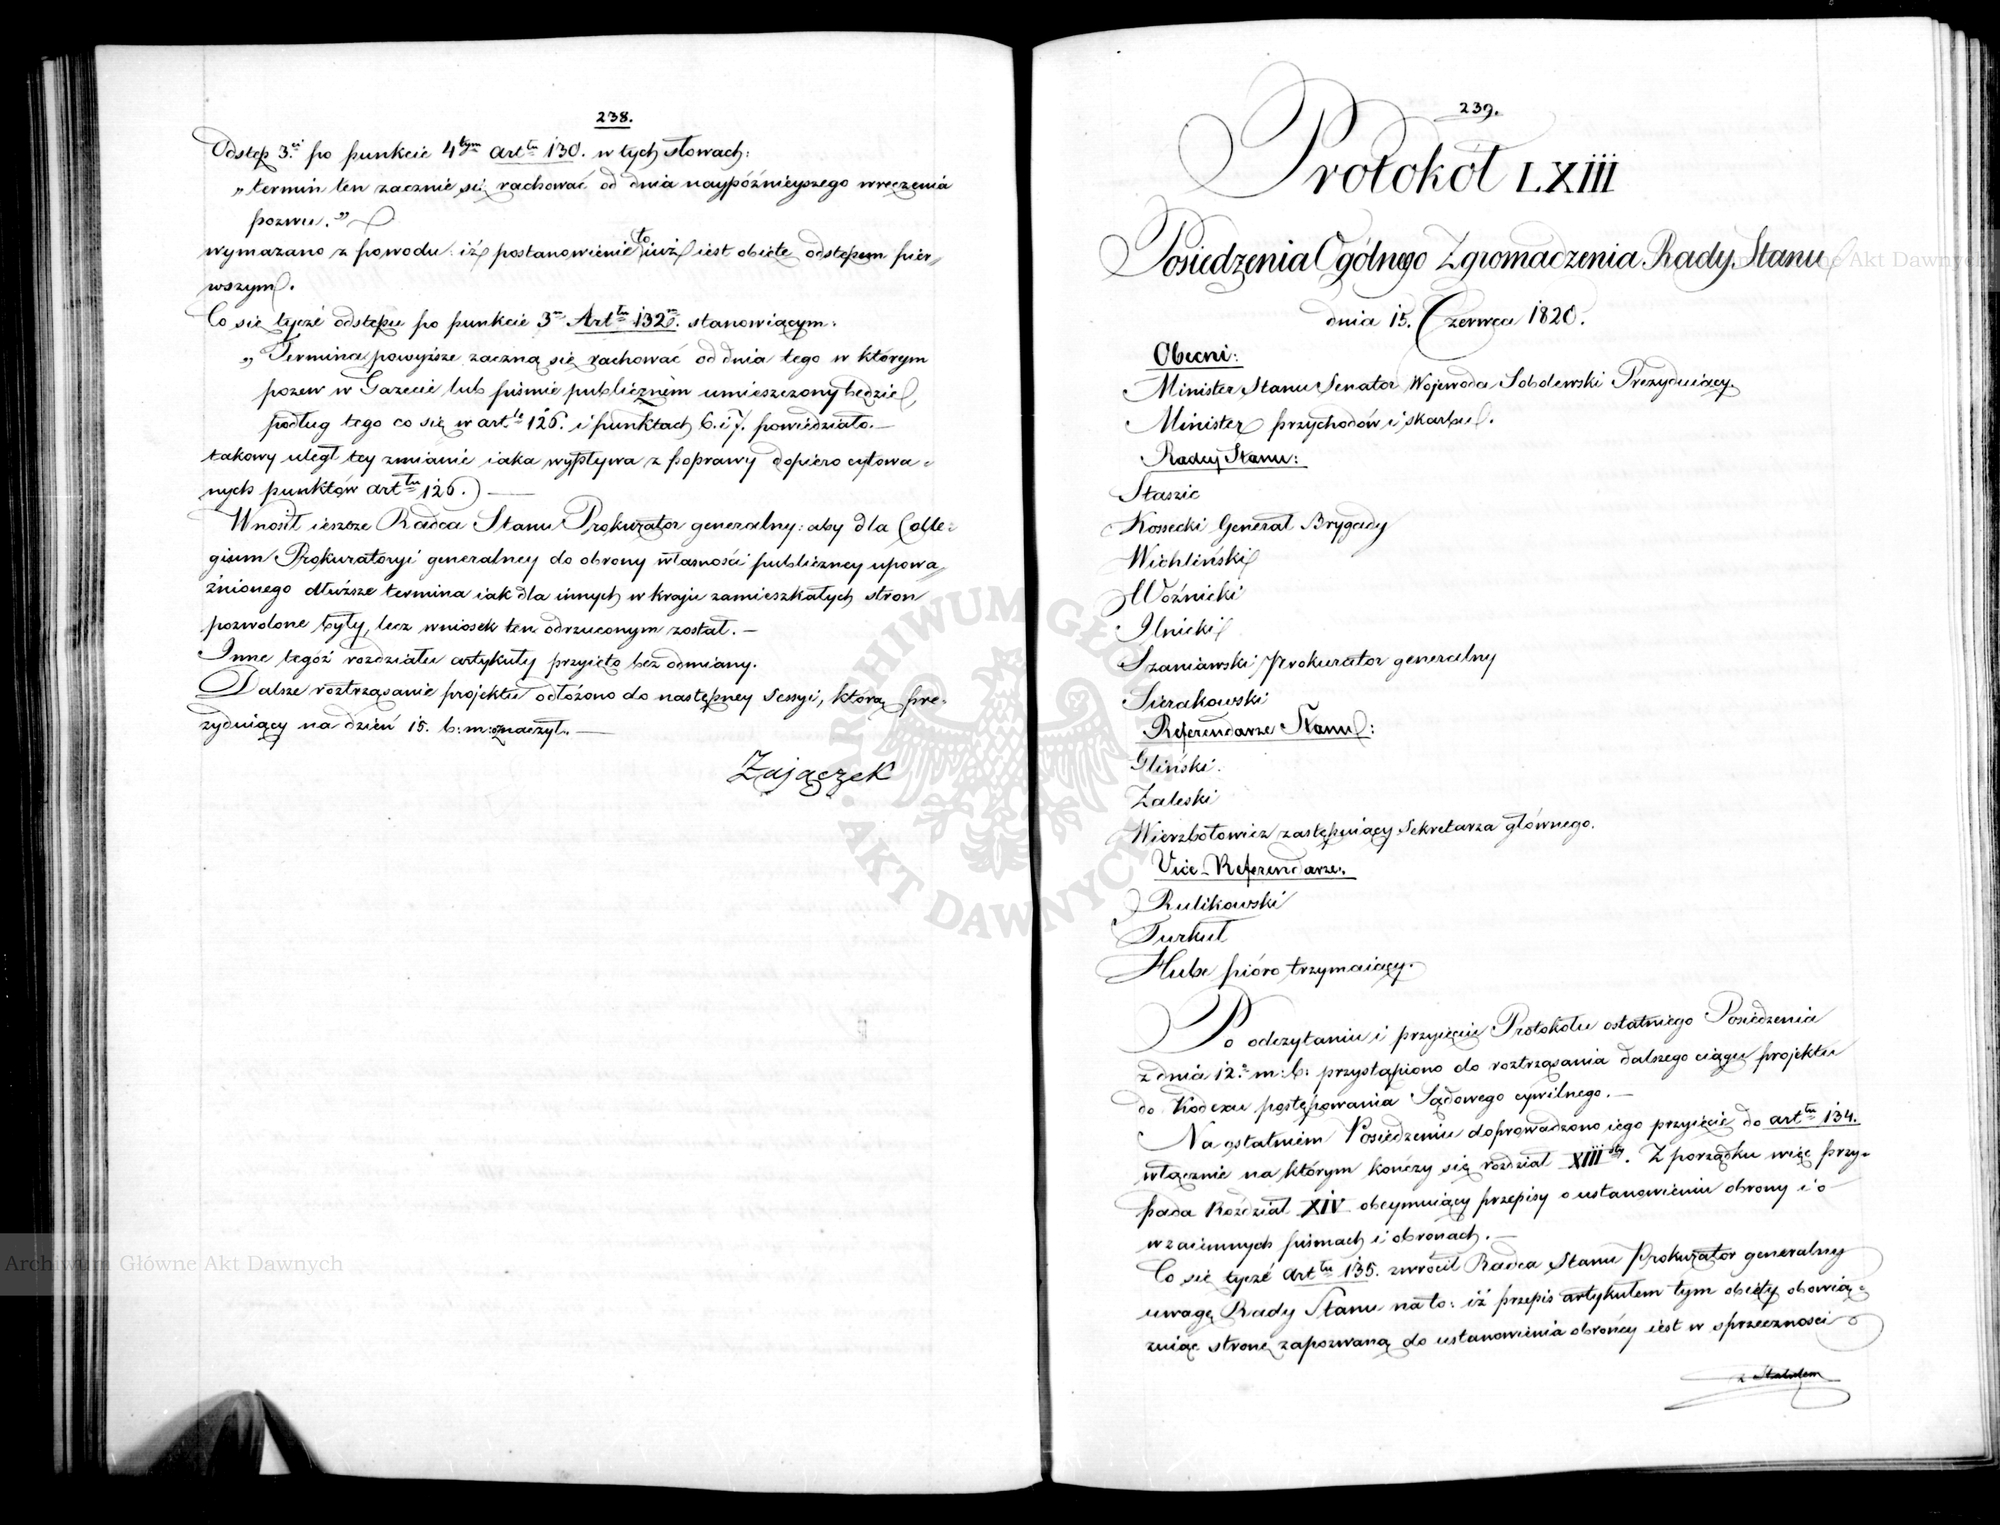 238.
Odstęp 3.ci po punkcie 4tym arttu 130. w tych słowach:
„termin ten zacznie się rachować od dnia naypóźnieyszego wręczenia
pozwu."
wymazano z powodu: iż postanowienie to iuż iest obięte odstępem pier„
wszym.
Co się tycze odstępu po punkcie 3m Arttu 132m. stanowiącym:
„Termina powyższe zaczną się rachować od dnia tego w którym
pozew w Gazecie lub piśmie publicznem umieszczony będzie,
podług tego co się w art.le 126. i punktach 6. i 7. powiedziało.—
takowy uległ tey zmianie iaka wypływa z poprawy dopiero cytowa=
nych punktów arttu 126.) —
Wnosił ieszcze Radca Stanu Prokurator generalny: aby dla Colle=
gium Prokuratoryi generalney do obrony własności publiczney upowa„
żnionego dłuższe termina iak dla innych w kraju zamieszkałych stron
pozwolone były, lecz wniosek ten odrzuconym został. —
Inne tegóż rozdziału artykuły przyięto bez odmiany.
Dalsze roztrząsanie projektu odłożono do następney Sessyi, którą pre=
zyduiący na dzień 15. b: m: oznaczył. —
Zajączek
239.
Protokół LXIII
Posiedzenia Ogólnego Zgromadzenia Rady Stanu
dnia 15. Czerwca 1820.
Obecni:
Minister Stanu Senator Wojewoda Sobolewski Prezyduiący.
Minister przychodów i skarbu.
Radcy Stanu:
Staszic
Kossecki Generał Brygady
Wichliński
Woźnicki
Ilnicki
Szaniawski Prokurator generalny
Sierakowski
Referendarze Stanu:
Gliński.
Zaleski
Wierzbołowicz zastępuiący Sekretarza głównego.
Vice-Referendarze.
Rulikowski
Turkuł
Hube pióro trzymaiący.
Po odczytaniu i przyięciu Protokółu ostatniego Posiedzenia
z dnia 12.o m: b: przystąpiono do roztrząsania dalszego ciągu projektu
do Kodexu postępowania Sądowego cywilnego. —
Na ostatniem Posiedzeniu doprowadzono iego przyięcie do arttu 134.
włącznie na którym kończy się rozdział XIIIsty. Z porządku więc przy=
pada Rozdział XIV obeymuiący przepisy o ustanowieniu obrony i o
wzaiemnych pismach i obronach. —
Co się tycze arttu 135. zwrócił Radca Stanu Prokurator generalny
uwagę Rady Stanu na to: iż przepis artykułem tym obięty obowią=
zuiąc stronę zapozwaną do ustanowienia obrońcy iest w sprzeczności
z Statutem
ARCHIWUM GŁÓWNE AKT DAWNYCH
Archiwum Główne Akt Dawnych
Archiwum Główne Akt Dawnych